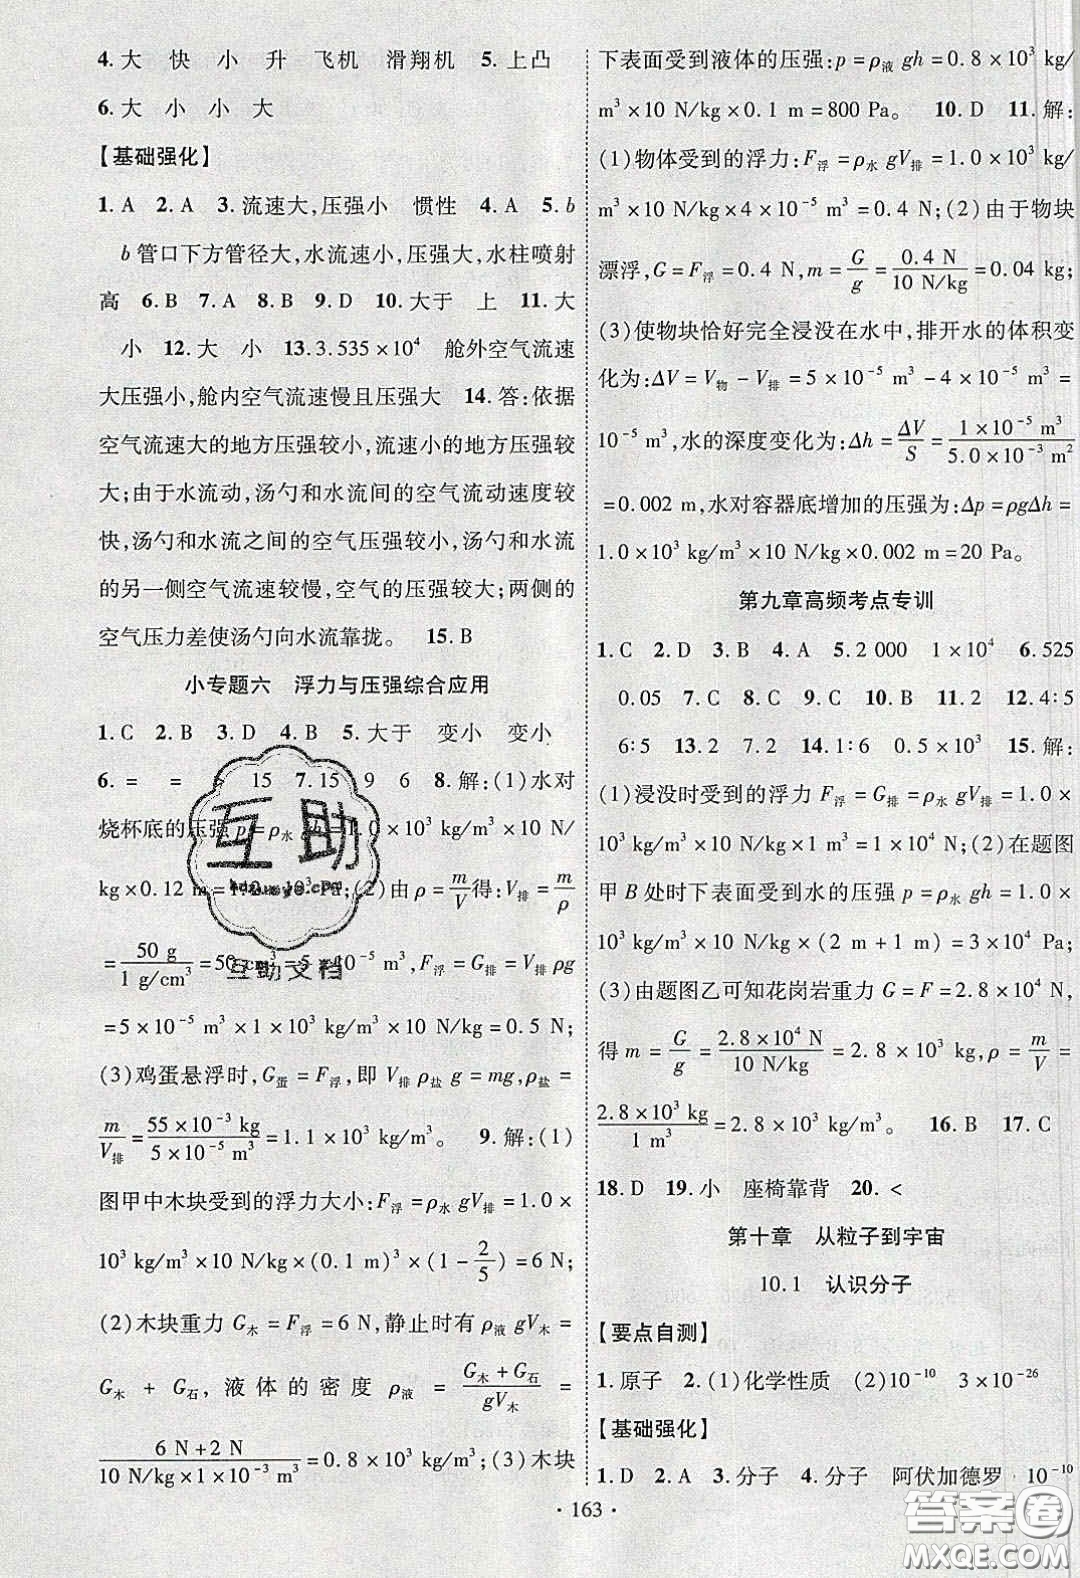 4.大 快 小 升 飞机 滑翔机 5.上凸
6.大 小 小 大
【基础强化】
1.A 2.A 3.流速大,压强小 惯性 4.A 5.b
b管口下方管径大,水流速小,压强大,水柱喷射
高 6.B 7.A 8.B 9.D 10.大于 上 11.大
小 12.大 小 13.3.535×10⁴ 舱外空气流速
大压强小,舱内空气流速慢且压强大 14.答:依据
空气流速大的地方压强较小,流速小的地方压强较
大;由于水流动,汤勺和水流间的空气流动速度较
快,汤勺和水流之间的空气压强较小,汤勺和水流
的另一侧空气流速较慢,空气的压强较大;两侧的
空气压力差使汤勺向水流靠拢。 15.B
小专题六 浮力与压强综合应用
1.C 2.B 3.D 4.B 5.大于 变小 变小
6.= = 6 15 7.15 9 6 8.解:(1)水对
烧杯底的压强p=ρ水gh=1.0×10³ kg/m³×10 N/
kg×0.12 m=1.2×10³ Pa;(2)由ρ=m/V得:V排=m/ρ
=50 g/1 g/cm³=50 cm³=5×10⁻⁵ m³,F浮=G排=V排ρg
=5×10⁻⁵ m³×1×10³ kg/m³×10 N/kg=0.5 N;
(3)鸡蛋悬浮时,G蛋=F浮,即V排ρ盐g=mg,ρ盐=
m/V排=55×10⁻³ kg/5×10⁻⁵ m³=1.1×10³ kg/m³。 9.解:(1)
图甲中木块受到的浮力大小:F浮=ρ水gV排=1.0×
10³ kg/m³×10 N/kg×10⁻³ m³×(1-2/5)=6 N;
(2)木块重力G木=F浮=6 N,静止时有ρ液gV木=
G木+G石,液体的密度ρ液=(G木+G石)/gV木=
(6 N+2 N)/(10 N/kg×1×10⁻³ m³)=0.8×10³ kg/m³;(3)木块
下表面受到液体的压强:p=ρ液gh=0.8×10³ kg/
m³×10 N/kg×0.1 m=800 Pa。 10.D 11.解:
(1)物体受到的浮力:F浮=ρ水gV排=1.0×10³ kg/
m³×10 N/kg×4×10⁻⁵ m³=0.4 N;(2)由于物块
漂浮,G=F浮=0.4 N,m=G/g=0.4 N/10 N/kg=0.04 kg;
(3)使物块恰好完全浸没在水中,排开水的体积变
化为:ΔV=V物-V排=5×10⁻⁵ m³-4×10⁻⁵ m³=
10⁻⁵ m³,水的深度变化为:Δh=ΔV/S=1×10⁻⁵ m³/5.0×10⁻³ m²
=0.002 m,水对容器底增加的压强为:Δp=ρgΔh=
1.0×10³ kg/m³×10 N/kg×0.002 m=20 Pa。
第九章高频考点专训
1.C 2.D 3.B 4.A 5.2 000 1×10⁴ 6.525
0.05 7.C 8.C 9.A 10.B 11.2 12.4∶5
6∶5 13.2 7.2 14.1∶6 0.5×10³ 15.解:
(1)浸没时受到的浮力F浮=G排=ρ水gV排=1.0×
10³ kg/m³×10 N/kg×1 m³=1×10⁴ N;(2)在题图
甲B处时下表面受到水的压强p=ρ水gh=1.0×
10³ kg/m³×10 N/kg×(2 m+1 m)=3×10⁴ Pa;
(3)由题图乙可知花岗岩重力G=F=2.8×10⁴ N,
得m=G/g=2.8×10⁴ N/10 N/kg=2.8×10³ kg,ρ=m/V=
2.8×10³ kg/1 m³=2.8×10³ kg/m³。 16.B 17.C
18.D 19.小 座椅靠背 20.<
第十章 从粒子到宇宙
10.1 认识分子
【要点自测】
1.原子 2.(1)化学性质 (2)10⁻¹⁰ 3×10⁻²⁶
【基础强化】
1.D 2.A 3.分子 4.分子 阿伏加德罗 10⁻¹⁰
· 163 ·
互助
互助文档
答案圈
MXQE.COM